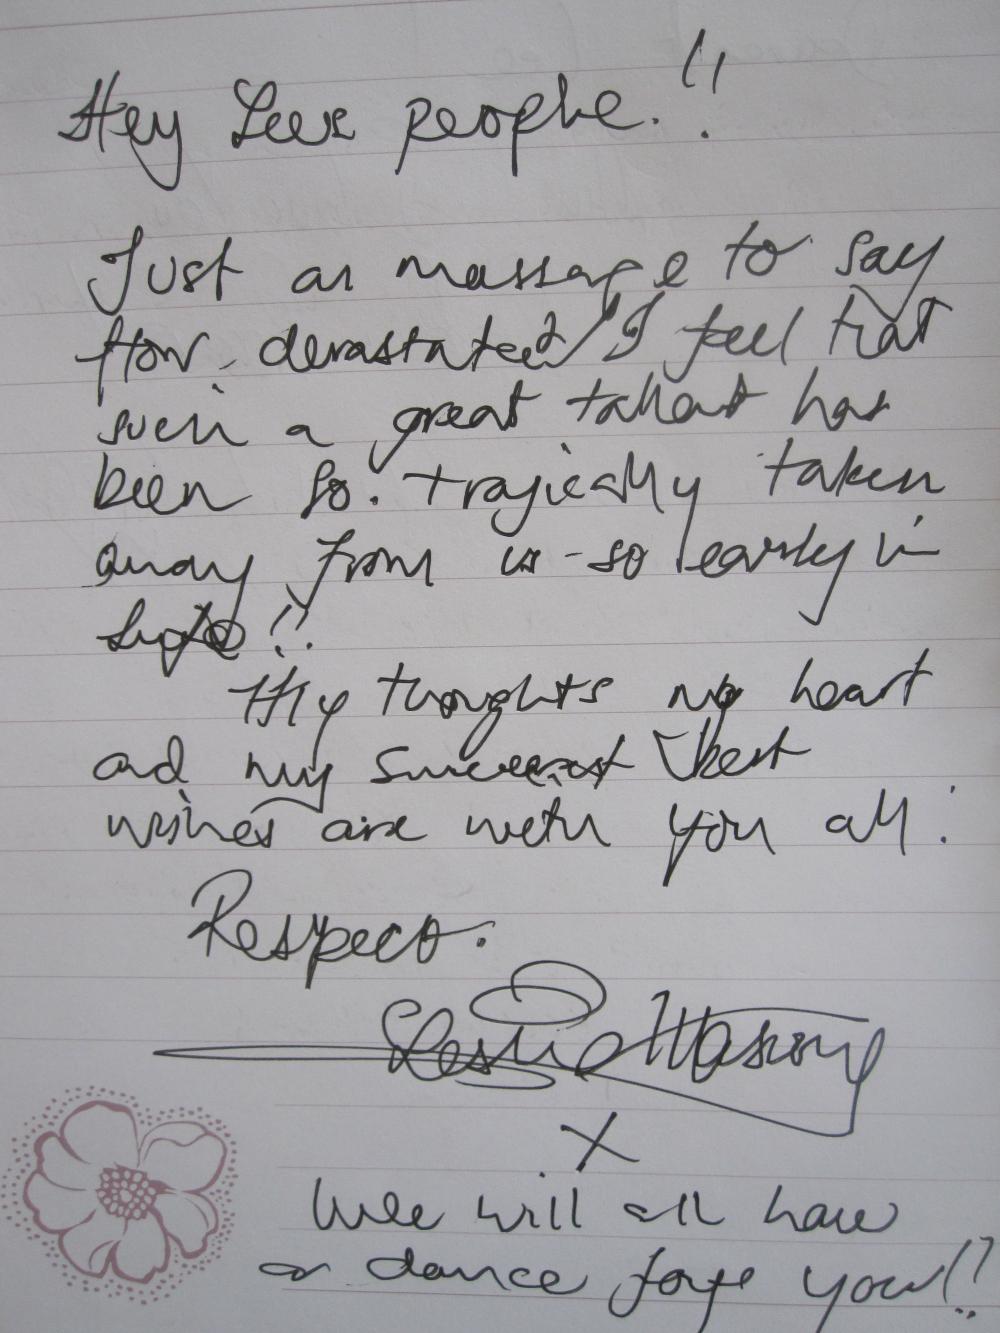 Hey Lees people.!!
Just a message to say
How devastated I feel that
such a great talent has
been so. tragically taken
away from us - so early in
life !!
My thoughts my heart
and my sincerest best
wishes are with you all!
Respect.
Leslie
X
We will all have
a dance for you!!